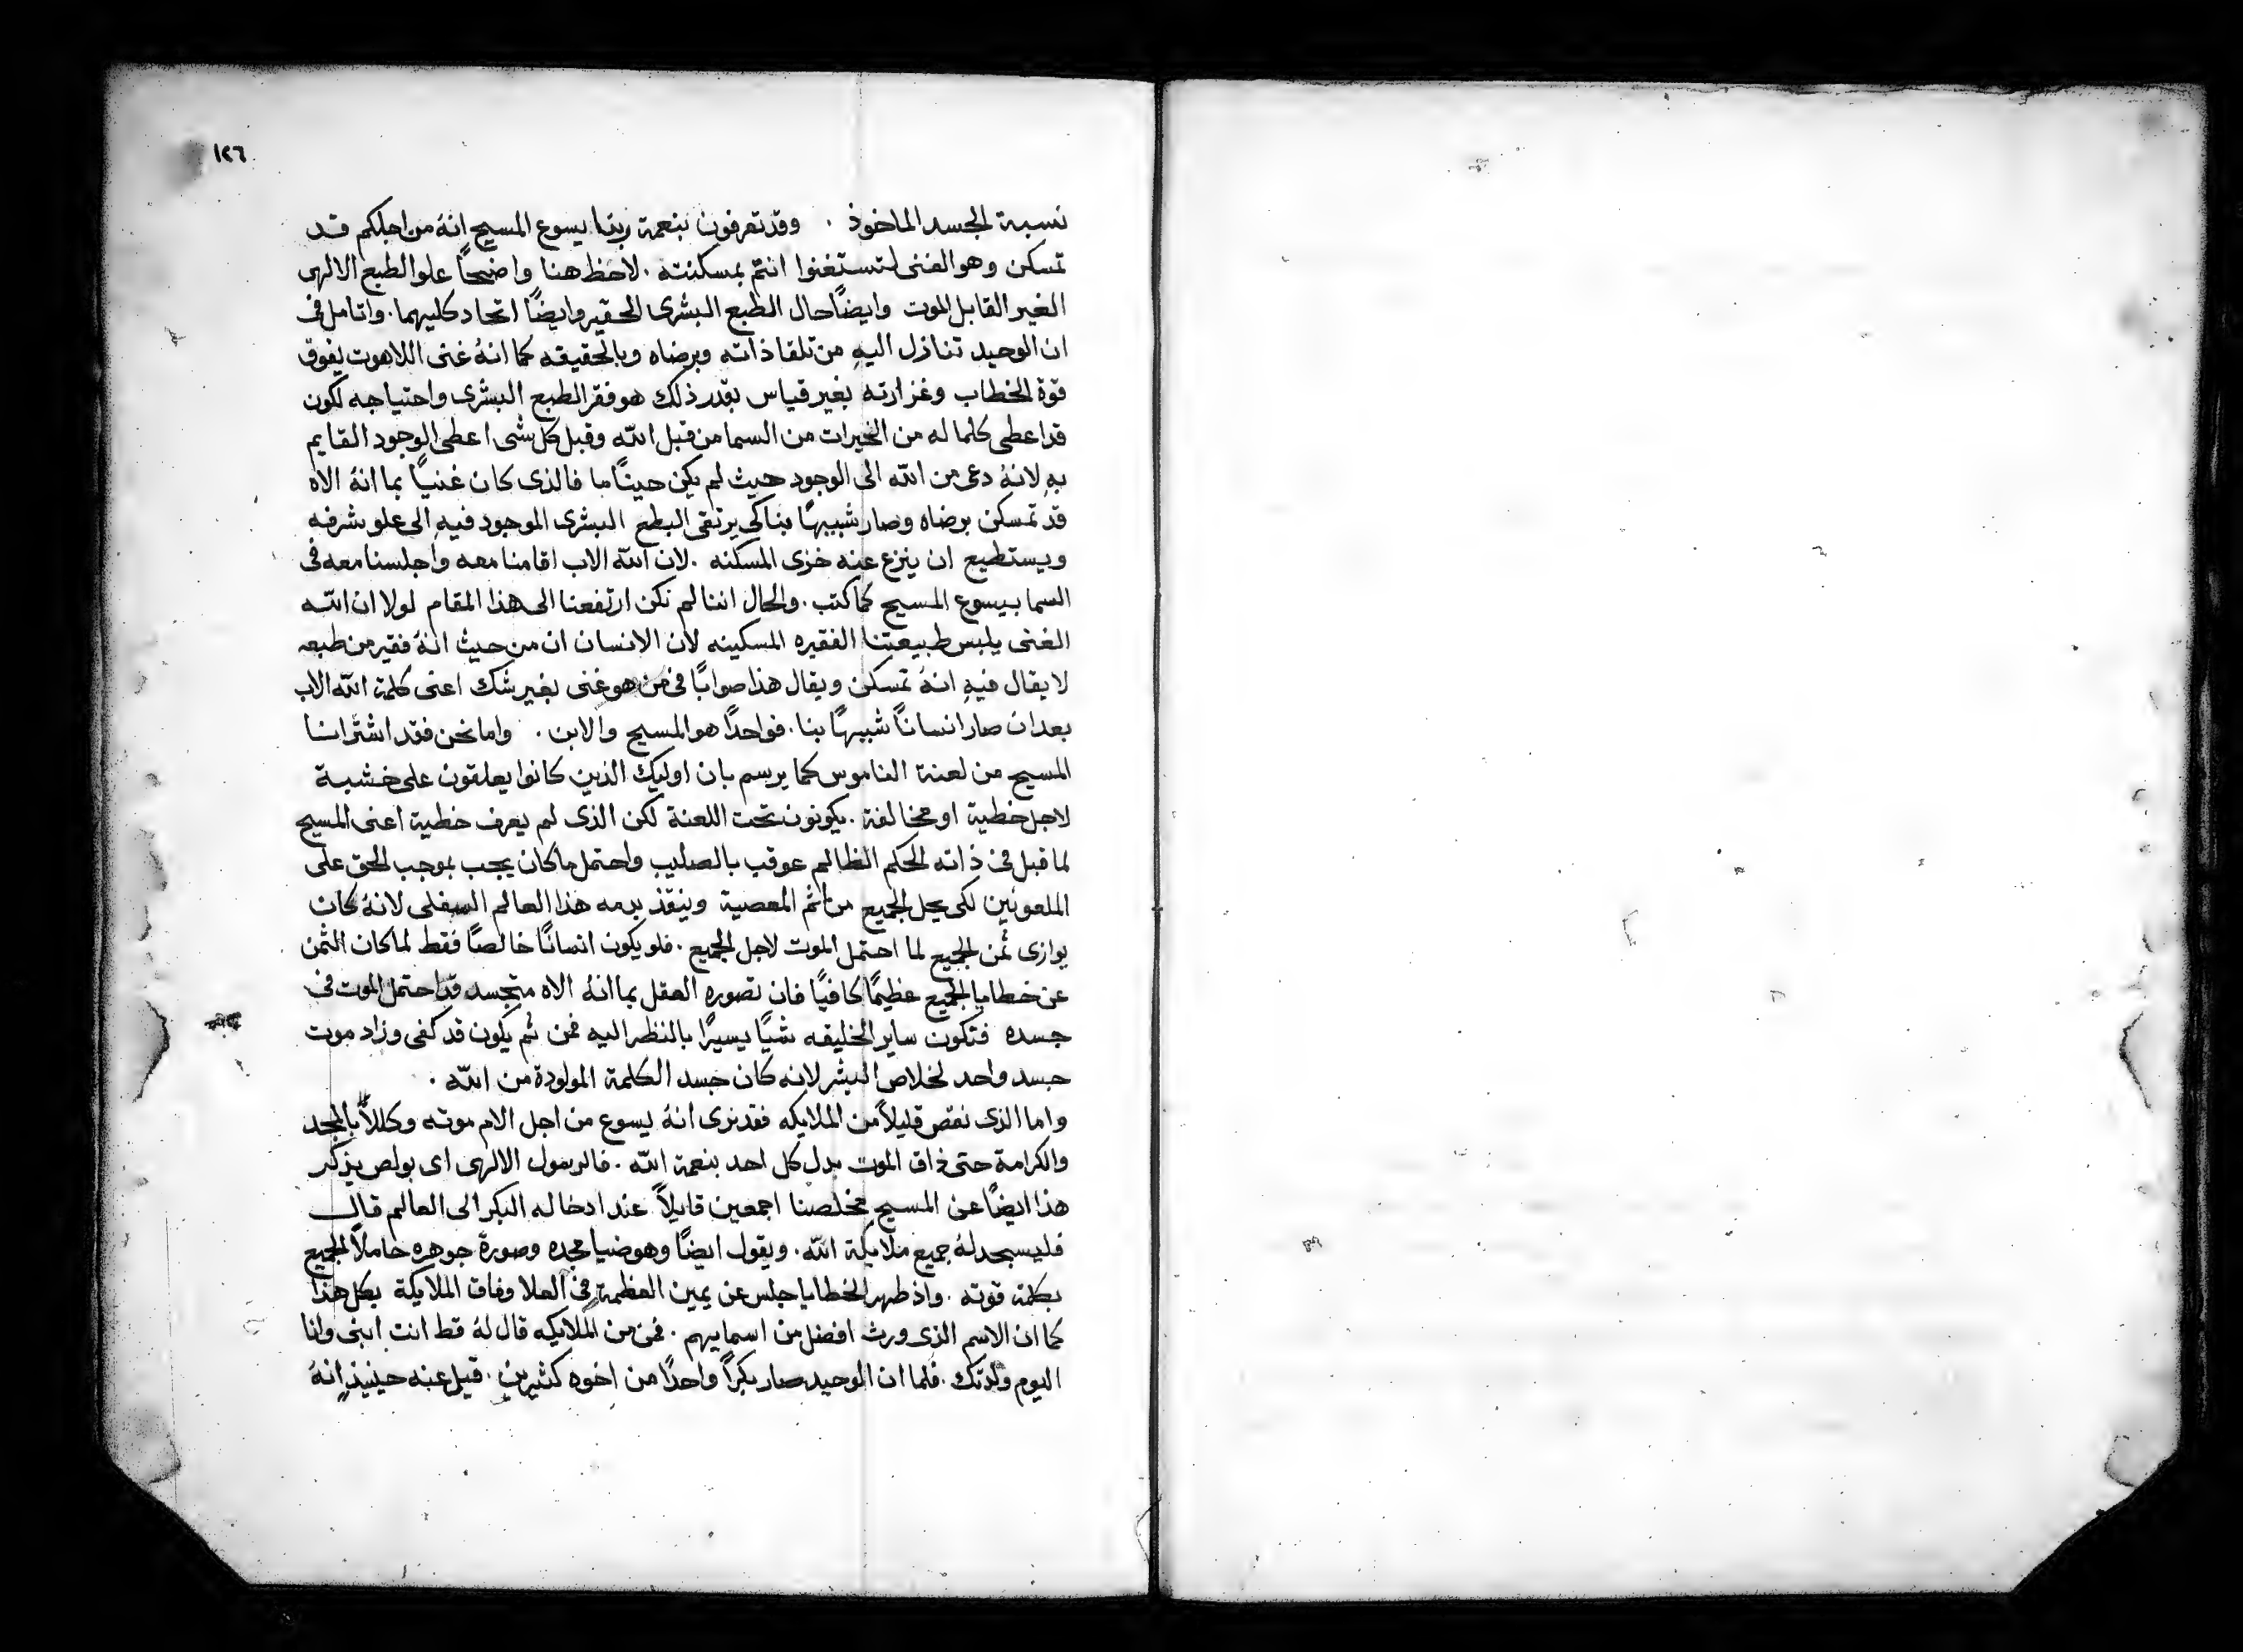 ١٢٦
نسبة الجسد الماخوذ . وقد تعرفون بنعمة ربنا يسوع المسيح انهُ من اجلكم قد
تمسكن وهو الغنى لتستغنوا انتم بمسكنته . لاحظ هنا واضحًا علو الطبع الالهى
الغير القابل الموت وايضًا حال الطبع البشرى الحقير وايضًا اتحاد كليهما . واتامل فى
ان الوحيد تنازل اليهِ من تلقا ذاته وبرضاه وبالحقيقه كما انهُ غنى اللاهوت يفوق
قوّة الخطاب وغزارته بغير قياس بقدر ذلك هو فقر الطبع البشرى واحتياجه لكون
قد اعطى كلما له من الخيرات من السما من قبل الله وقبل كل شى اعطى الوجود القايم
بهِ لانهُ دعى من الله الى الوجود حيث لم يكن حينًا ما فالذى كان غنيًا بما انهُ الاه
قد تمسكن برضاه وصار شبيهًا بنا كى يرتقى البطع البشرى الموجود فيهِ الى علو شرفه
ويستطيع ان ينزع عنه خزى المسكنه . لان الله الاب اقامنا معه واجلسنا معه فى
السما بيسوع المسيح كما كتب . والحال اننا لم نكن ارتفعنا الى هذا المقام لولا ان الله
الغنى يلبس طبيعتنا الفقيره المسكينه لان الانسان ان من حيث انهُ فقير من طبعه
لا يقال فيهِ انهُ تمسكن ويقال هذا صوابًا فى من هو غنى بغير شك اعنى كلمة الله الاب
بعد ان صار انسانًا شبيهًا بنا . فواحدًا هو المسيح والابن . واما نحن فقد اشترانا
المسيح من لعنة الناموس كما يرسم بان اوليك الذين كانوا يعلقون على خشبة
لاجل خطية او مخالفة . يكونون تحت اللعنة لكن الذى لم يعرف خطية اعنى المسيح
لما قبل فى ذاته الحكم الظالم عوقب بالصليب واحتمل ما كان يجب بموجب الحق على
الملعونين لكى يحل الجميع من اثم المعصية وينقذ بدمه هذا العالم السفلى لانهُ كان
يوازى ثمن الجميع لما احتمل الموت لاجل الجميع . فلو يكون انسانًا خالصًا فقط لما كان الثمن
عن خطايا الجميع عظيمًا كافيًا فان تصوره العقل بما انهُ الاه متجسد قد احتمل الموت فى
جسده فتكون ساير الخليقه شيًا يسيرًا بالنظر اليه فمن ثم يكون قد كفى وزاد موت
جسد واحد لخلاص البشر لانه كان جسد الكلمة المولودة من الله .
واما الذى نقص قليلاً من الملايكه فقد نرى انهُ يسوع من اجل الام موته وكللاً بالمجد
والكرامة حتى ذاق الموت بدل كل احد بنعمة الله . فالرسول الالهى اى بولص يذكر
هذا ايضًا عن المسيح مخلصنا اجمعين قايلاً عند ادخاله البكر الى العالم قال
فليسجد لهُ جميع ملايكة الله . ويقول ايضًا وهو ضيا مجده وصورة جوهره حاملاً الجميع
بكلمة قوته . واذ طهر الخطايا جلس عن يمين العظمة فى العلا وفاق الملايكة بكل هذا
كما ان الاسم الذى ورث افضل من اسمايهم . فمن من الملايكه قال لهُ قط انت ابنى وانا
اليوم ولدتك . فلما ان الوحيد صار بكرًا واحدًا من اخوه كثيرين . قيل عنه حينيذٍ انهُ